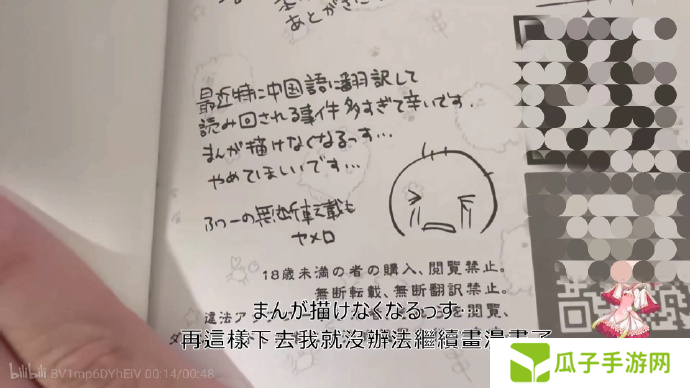 あとがき
最近特に中国語に翻訳して
読み回される事件多すぎて辛いです.
まんが描けなくなるっす…
やめてほしいです…
ふつーの無断転載も
ヤメロ
18歳未満の者の購入、閲覧禁止。
無断転載、無断翻訳禁止。
違法ア
を閲覧、
まんが描けなくなるっす…
再這樣下去我就沒辦法繼續畫漫畫了
bilibili BV1mp6DYhEiV 00:14/00:48
瓜子手游网